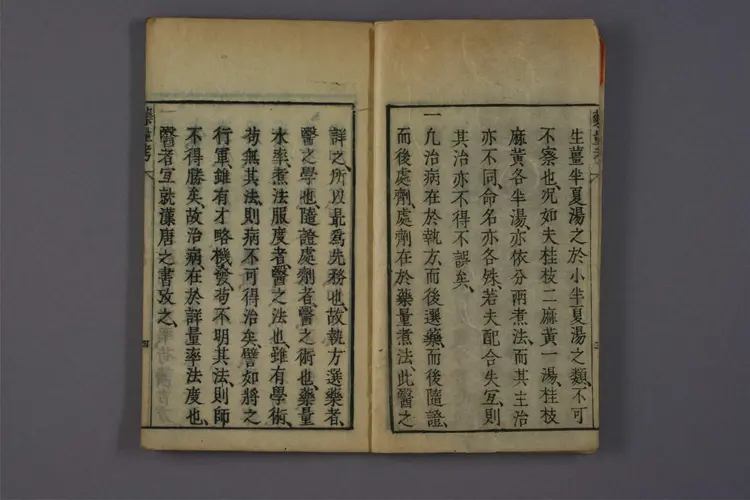 藥量考
生薑半夏湯之於小半夏湯之類、不可
不察也、況如夫桂枝二麻黃一湯、桂枝
麻黃各半湯、亦依分兩煮法、而其主治
亦不同、命名亦各殊、若夫配合失宜、則
其治亦不得不誤矣、
一凡治病在於執方、而後選藥、而後隨證、
而後處劑、處劑在於藥量煮法、此醫之
詳之、所以最爲先務也、故執方選藥者、
醫之學也、隨證處劑者、醫之術也、藥量
水率、煮法服度者、醫之法也、雖有學術、
苟無其法、則病不可得治矣、譬如將之
行軍、雖有才略機發、苟不明其法、則師
不得勝矣、故治病、在於詳量率法度也、
一醫者宜就漢唐之書攷之、
藥量考
四